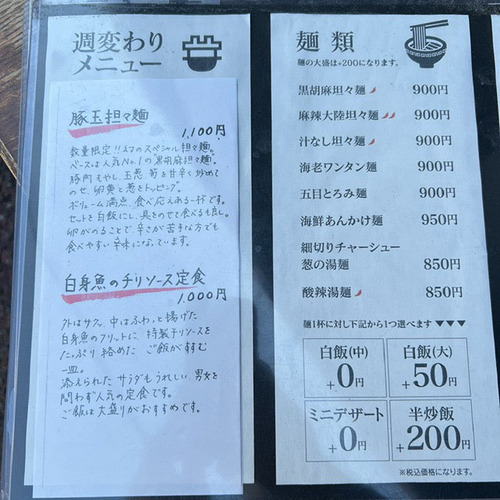 週変わり
メニュー
豚玉担々麺
1,100円
数量限定!!スペシャル担々麺。
ベースは人気No.1の黒胡麻担々麺。
豚肉もやし、玉葱 筍を甘辛く炒めて
のせ、卵黄と葱をトッピング。
ボリューム満点、食べ応えある一杯です。
セットを白飯にし、具をのせて食べるも良し。
卵がのることで 辛さが苦手な方でも
食べやすい辛味になっています。
白身魚のチリソース定食
1,000円
外はサクッ、中はふわっと揚げた
白身魚のフリットに 特製チリソースを
たっぷり絡めた ご飯がすすむ
一皿。
添えられたサラダもうれしい、男女を
問わず人気の定食です。
ご飯は大盛りがおすすめです。
麺類
麺の大盛は+200になります。
黒胡麻坦々麺 900円
麻辣大陸坦々麺 900円
汁なし坦々麺 900円
海老ワンタン麺 900円
五目とろみ麺 900円
海鮮あんかけ麺 950円
細切りチャーシュー
葱の湯麺 850円
酸辣湯麺 850円
麺1杯に対し下記から1つ選べます ▼▼▼
白飯(中) 白飯(大)
+0円 +50円
ミニデザート 半炒飯
+0円 +200円
※税込価格になります。